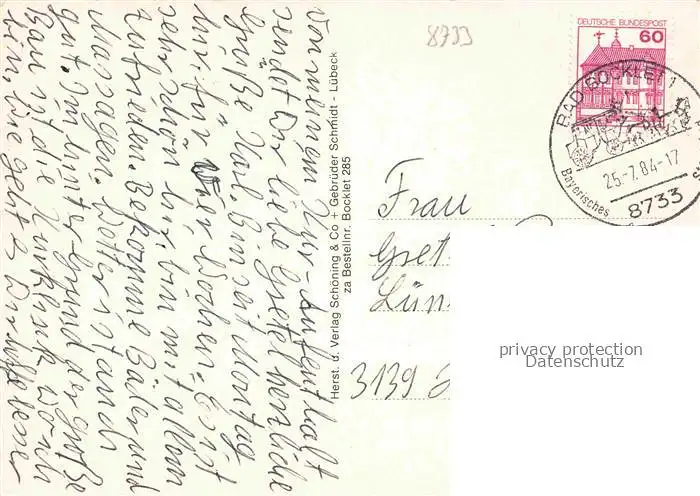 Von meinem Kur-Aufenthalt
sendet Dir liebe Gretel herzliche
Grüße Karl. Bin seit Montag
hier für vier Wochen. Es ist
sehr schön hier bin mit allem
zufrieden. Bekomme Bäder und
Massagen. Wetter ist auch
gut. Im Hintergrund der große
Bau ist die Kurklinik wo ich
bin. Wie geht es Dir
Herst. u. Verlag Schöning & Co + Gebrüder Schmidt - Lübeck
za Bestellnr. Bocklet 285
8733
DEUTSCHE BUNDESPOST
60
BAD BOCKLET 1
25.-7.84-17
Bayerisches
8733
Frau
Gret
Lün
3139
privacy protection
Datenschutz